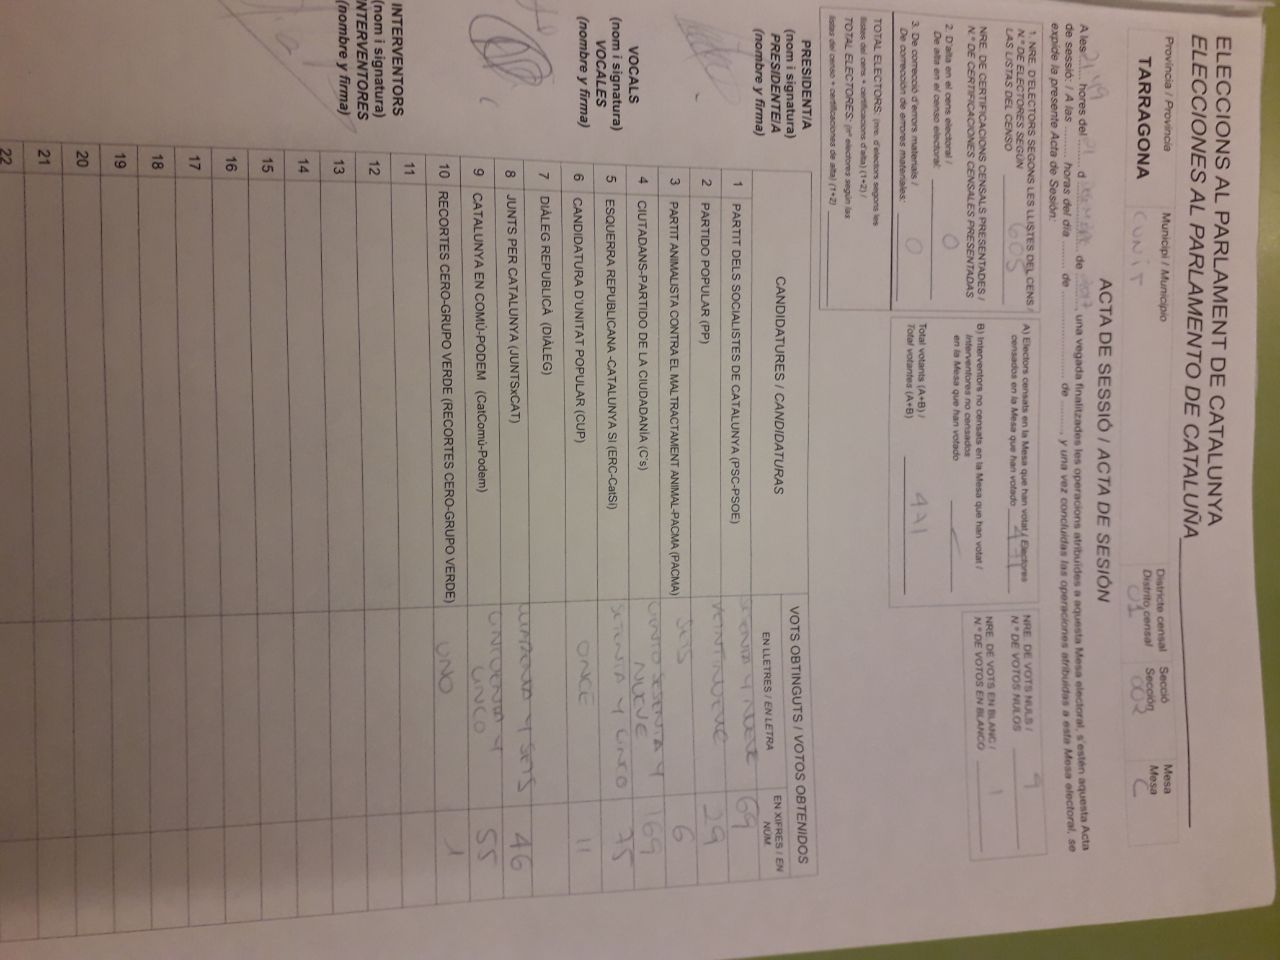 ELECCIONS AL PARLAMENT DE CATALUNYA
ELECCIONES AL PARLAMENTO DE CATALUÑA
Província / Provincia
TARRAGONA
Municipi / Municipio
CUNIT
Districte censal
Distrito censal
01
Secció
Sección
002
Mesa
Mesa
C
ACTA DE SESSIÓ / ACTA DE SESIÓN
A les hores del d de de , una vegada finalitzades les operacions atribuïdes a aquesta Mesa electoral, s'estén aquesta Acta
de sessió: / A las ......... horas del día ........ de .................... de ........., y una vez concluidas las operaciones atribuidas a esta Mesa electoral, se
expide la presente Acta de Sesión:
1. NRE. D'ELECTORS SEGONS LES LLISTES DEL CENS /
N.º DE ELECTORES SEGÚN
LAS LISTAS DEL CENSO
605
NRE. DE CERTIFICACIONS CENSALS PRESENTADES /
N.º DE CERTIFICACIONES CENSALES PRESENTADAS
2. D'alta en el cens electoral /
De alta en el censo electoral:
0
3. De correcció d'errors materials /
De corrección de errores materiales:
0
TOTAL ELECTORS: (nre. d'electors segons les
llistes del cens + certificacions d'alta) (1+2) /
TOTAL ELECTORES: (nº electores según las
listas del censo + certificaciones de alta) (1+2)
A) Electors censats en la Mesa que han votat / Electores
censados en la Mesa que han votado
471
B) Interventors no censats en la Mesa que han votat /
Interventores no censados
en la Mesa que han votado
Total votants (A+B) /
Total votantes (A+B)
471
NRE. DE VOTS NULS /
N.º DE VOTOS NULOS
9
NRE. DE VOTS EN BLANC /
N.º DE VOTOS EN BLANCO
1
PRESIDENT/A
(nom i signatura)
PRESIDENTE/A
(nombre y firma)
VOCALS
(nom i signatura)
VOCALES
(nombre y firma)
INTERVENTORS
(nom i signatura)
INTERVENTORES
(nombre y firma)
CANDIDATURES / CANDIDATURAS
VOTS OBTINGUTS / VOTOS OBTENIDOS
EN LLETRES / EN LETRA
EN XIFRES / EN NÚM.
1 PARTIT DELS SOCIALISTES DE CATALUNYA (PSC-PSOE) SESENTA Y NUEVE 69
2 PARTIDO POPULAR (PP) VEINTINUEVE 29
3 PARTIT ANIMALISTA CONTRA EL MALTRACTAMENT ANIMAL-PACMA (PACMA) SEIS 6
4 CIUTADANS-PARTIDO DE LA CIUDADANÍA (C's) CIENTO SESENTA Y NUEVE 169
5 ESQUERRA REPUBLICANA -CATALUNYA SÍ (ERC-CatSí) SETENTA Y CINCO 75
6 CANDIDATURA D'UNITAT POPULAR (CUP) ONCE 11
7 DIÀLEG REPUBLICÀ (DIÀLEG)
8 JUNTS PER CATALUNYA (JUNTSxCAT) CUARENTA Y SEIS 46
9 CATALUNYA EN COMÚ-PODEM (CatComú-Podem) CINCUENTA Y CINCO 55
10 RECORTES CERO-GRUPO VERDE (RECORTES CERO-GRUPO VERDE) UNO 1
11
12
13
14
15
16
17
18
19
20
21
22